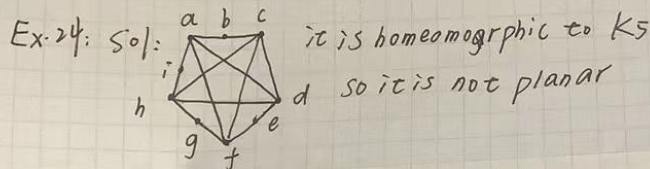 Ex.24: Sol:
a b c
i
h d
g f e
it is homeomogrphic to K5
so it is not planar